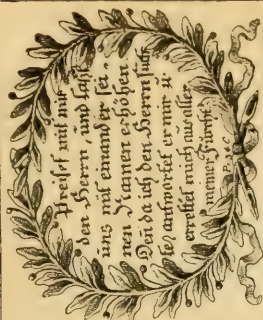 Preiset mit mir
den Herrn, und laßt
uns mit einander sei-
nen Namen erhöhen.
Den̄ da ich den Herrn sucht
te, antwortet er mir ū
errettet mich aus aller
meiner Furcht.